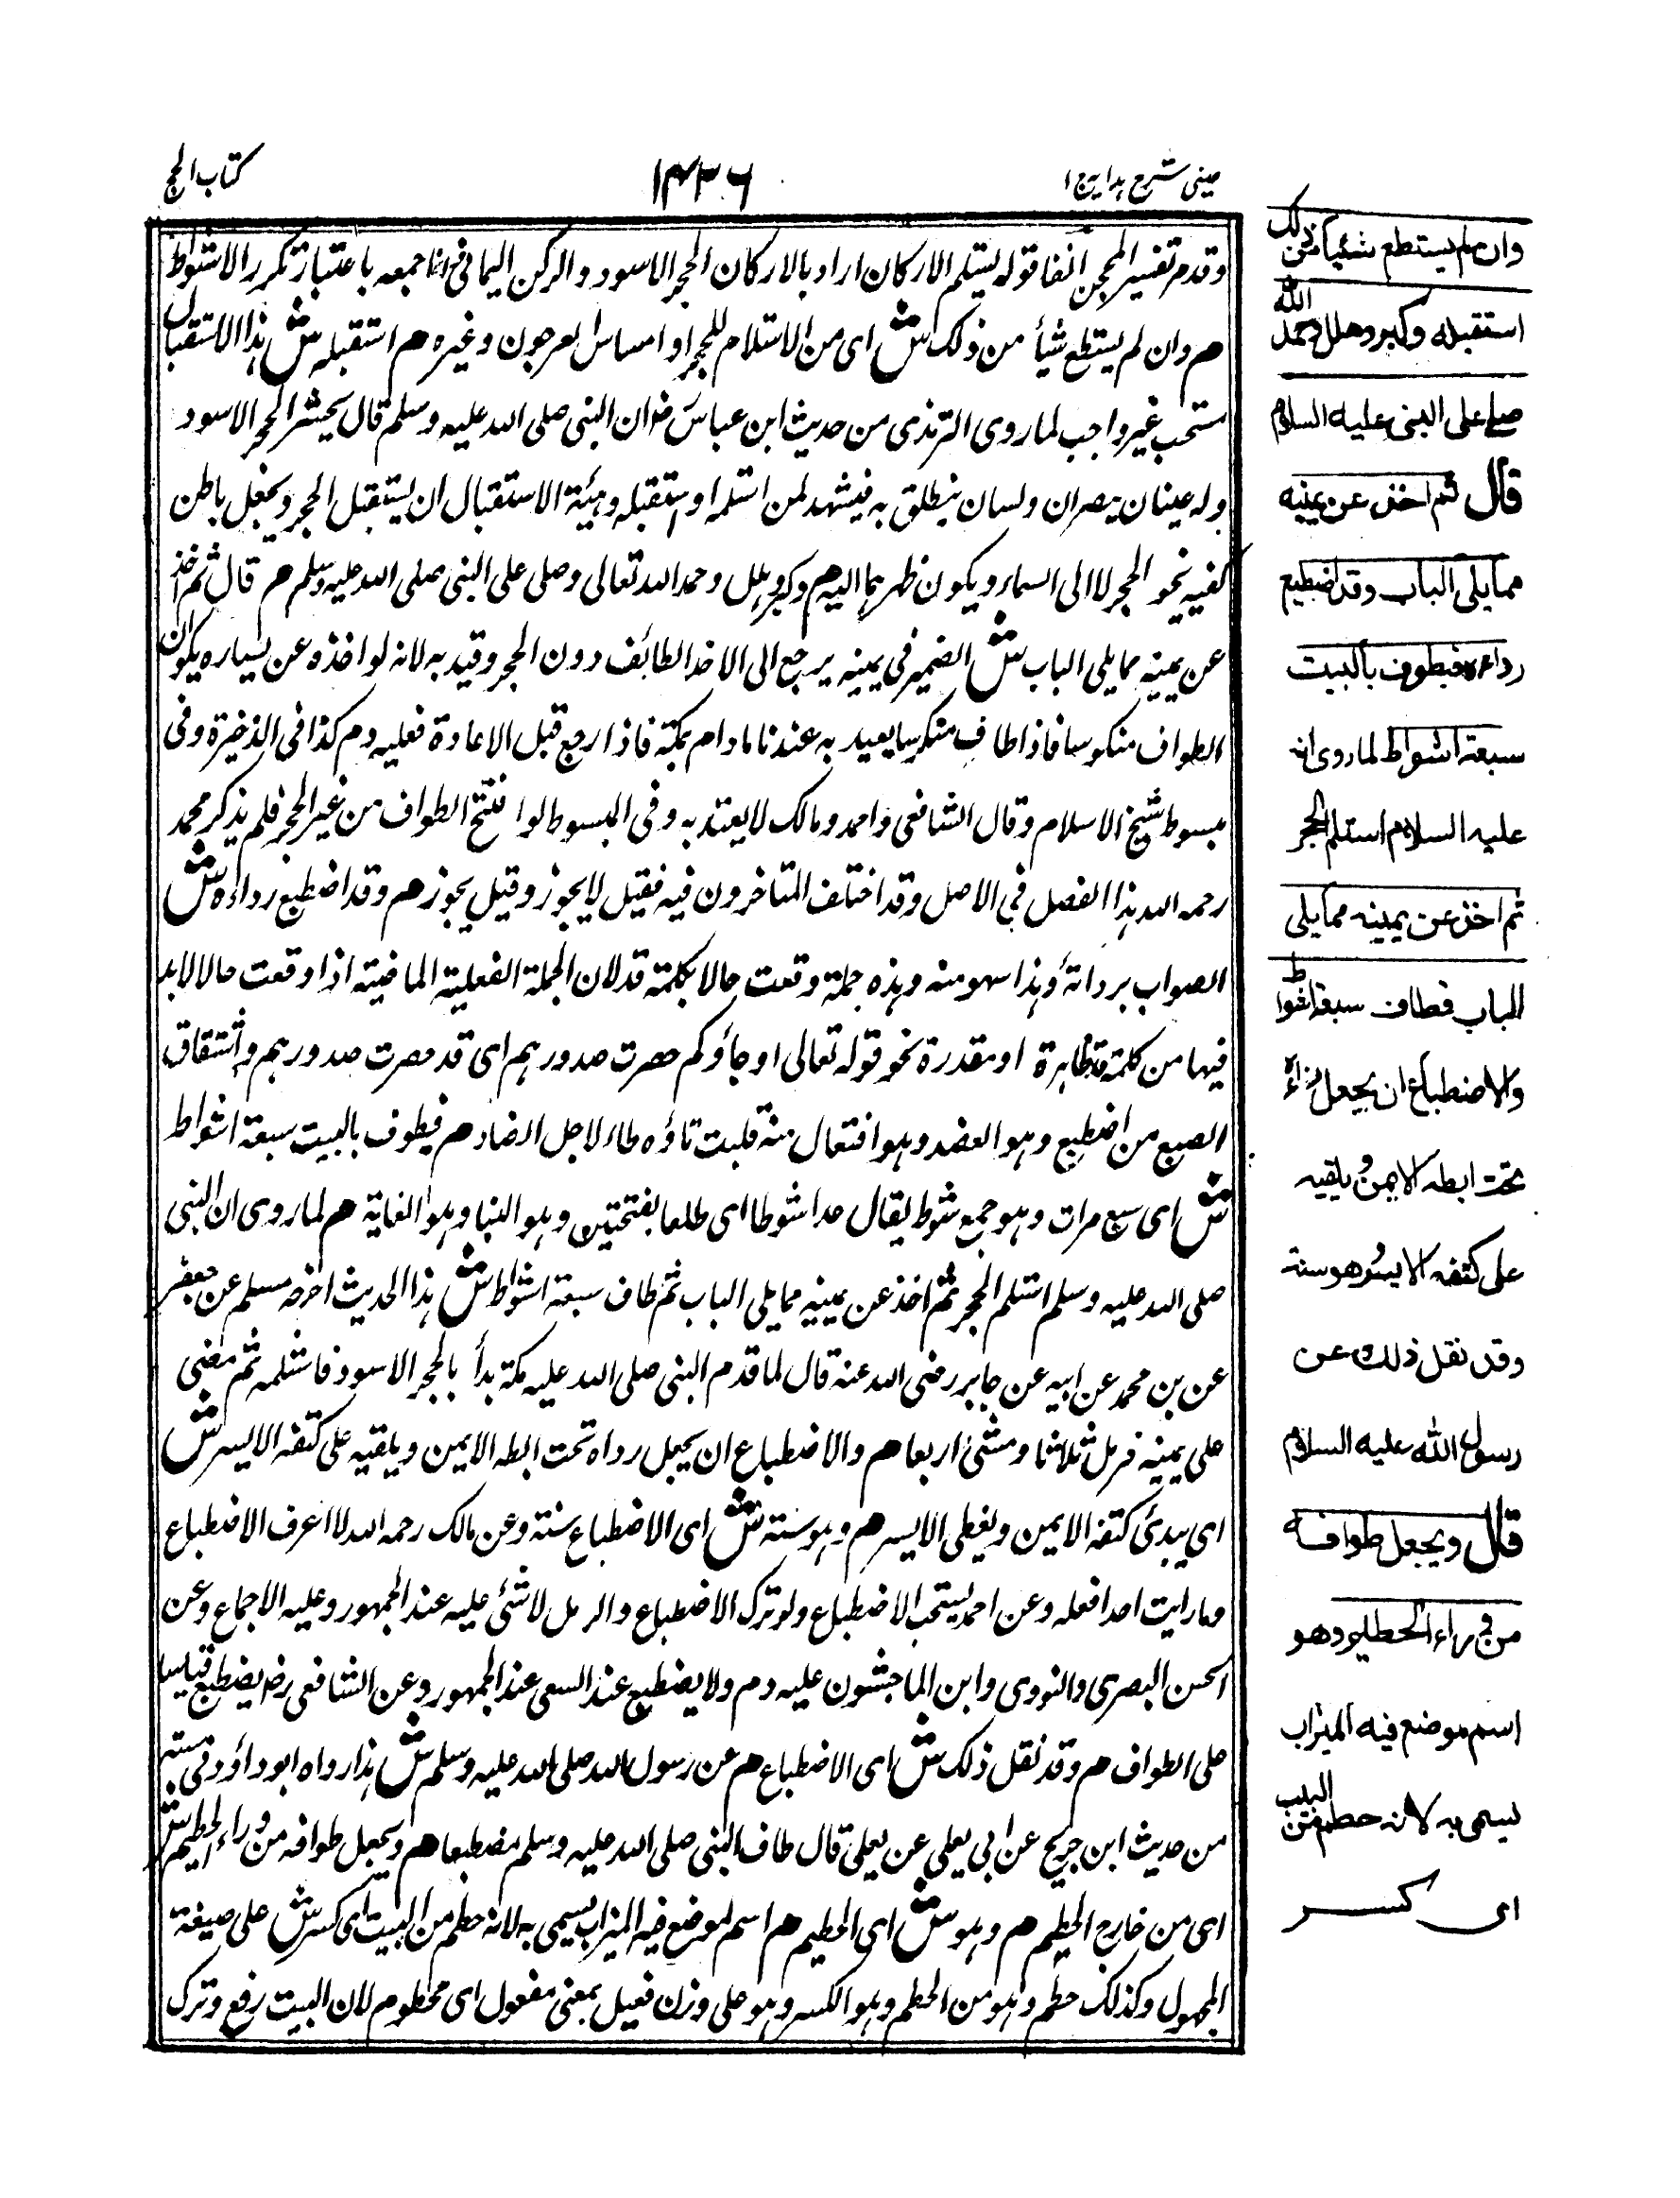 عینی شرح ہدایہ ج ۱
۱۴۳۶
کتاب الحج
وقد مر تفسیر المحجن آنفا قولہ یستلم الارکان اراد بالارکان الحجر الاسود والرکن الیمانی انما جمعہ باعتبار تکرر الاشواط
ھم وان لم یستطع شیأ من ذلک ش ای من الاستلام للحجر او امساس العرجون وغیرہ ھم استقبلہ ش ہذا الاستقبال
مستحب غیر واجب لما روی الترمذی من حدیث ابن عباس رض ان النبی صلی اللہ علیہ وسلم قال یحشر الحجر الاسود
ولہ عینان یبصران ولسان ینطلق بہ فیشہد لمن استلمہ او استقبلہ وہیئة الاستقبال ان یستقبل الحجر ویجعل باطن
کفیہ نحو الحجر لا الی السماء ویکون ظہرہما الیہ ھم وکبر وہلل وحمد اللہ تعالی وصلی علی النبی صلی اللہ علیہ وسلم ھم قال ثم اخذ
عن یمینہ مما یلی الباب ش الضمیر فی یمینہ یرجع الی الاخذ الطائف دون الحجر وقید بہ لانہ لو اخذہ عن یسارہ یکون
الطواف منکوسا فاذا طاف منکوسا یعید بہ عندنا ما دام بمکة فاذا رجع قبل الاعادة فعلیہ دم کذا فی الذخیرة وفی
مبسوط شیخ الاسلام وقال الشافعی واحمد ومالک لا یعتد بہ وفی المبسوط لو افتتح الطواف من غیر الحجر فلم یذکر محمد
رحمہ اللہ ہذا الفصل فی الاصل وقد اختلف المتاخرون فیہ فقیل لا یجوز وقیل یجوز ھم وقد اضطبع رداءہ ش
الصواب بردائہ وہذا سہو منہ وہذہ جملة وقعت حالا بکلمة قد لان الجملة الفعلیة الماضیة اذا وقعت حالا لا بد
فیہا من کلمة قد ظاہرة او مقدرة نحو قولہ تعالی او جاؤکم حصرت صدورہم ای قد حصرت صدورہم واشتقاق
الصبع من اضطبع وہو العضد وہو افتعال منہ قلبت تاؤہ طاء لاجل الضاد ھم فیطوف بالبیت سبعة اشواط
ش ای سبع مرات وہو جمع شوط یقال عدا شوطا ای طلعا بفتحتین وہو النبا وہو الغایة ھم لما روی ان النبی
صلی اللہ علیہ وسلم استلم الحجر ثم اخذ عن یمینہ مما یلی الباب ثم طاف سبعة اشواط ش ہذا الحدیث اخرجہ مسلم عن جعفر
عن بن محمد عن ابیہ عن جابر رضی اللہ عنہ قال لما قدم النبی صلی اللہ علیہ مکة بدأ بالحجر الاسود فاستلمہ ثم مضی
علی یمینہ فرمل ثلاثا ومشی اربعا ھم والاضطباع ان یجعل رداہ تحت ابطہ الایمن ویلقیہ علی کتفہ الایسر ش
ای یبدئ کتفہ الایمن ویغطی الایسر ھم وہو سنة ش ای الاضطباع سنة وعن مالک رحمہ اللہ لا اعرف الاضطباع
وما رایت احدا فعلہ وعن احمد یستحب الاضطباع ولو ترک الاضطباع والرمل لا شئ علیہ عند الجمہور وعلیہ الاجماع وعن
الحسن البصری والنووی وابن الماجشون علیہ دم ولا یضطبع عند السعی عند الجمہور وعن الشافعی رض یضطبع قیاسا
علی الطواف ھم وقد نقل ذلک ش ای الاضطباع ھم عن رسول اللہ صلی اللہ علیہ وسلم ش ہذا رواہ ابو داؤد فی سننہ
من حدیث ابن جریج عن ابی یعلی عن یعلی قال طاف النبی صلی اللہ علیہ وسلم مضطبعا ھم ویجعل طوافہ من وراء الحطیم ش
ای من خارج الحطیم ھم وہو ش ای الحطیم ھم اسم لموضع فیہ المیزاب یسمی بہ لانہ حطم من البیت ای کسر ش علی صیغة
المجہول وکذلک حطم وہو من الحطم وہو الکسر وہو علی وزن فعیل بمعنی مفعول ای محطوم لان البیت رفع وترک
وان لم یستطع شیئا من ذلک
استقبلہ وکبر وھلل وحمد اللہ
صلے علی النبی علیہ السلام
قال ثم اخذ عن یمینہ
مما یلی الباب وقد اضطبع
رداءہ فیطوف بالبیت
سبعة اشواط لما روی انہ
علیہ السلام استلم الحجر
ثم اخذ عن یمینہ مما یلی
الباب فطاف سبعة اشواط
والاضطباع ان یجعل رداءہ
تحت ابطہ الایمن ویلقیہ
علی کتفہ الایسر وھو سنة
وقد نقل ذلک عن
رسول اللہ علیہ السلام
قال ویجعل طوافہ
من وراء الحطیم وھو
اسم موضع فیہ المیزاب
یسمی بہ لانہ حطم من البیت
ای کسر